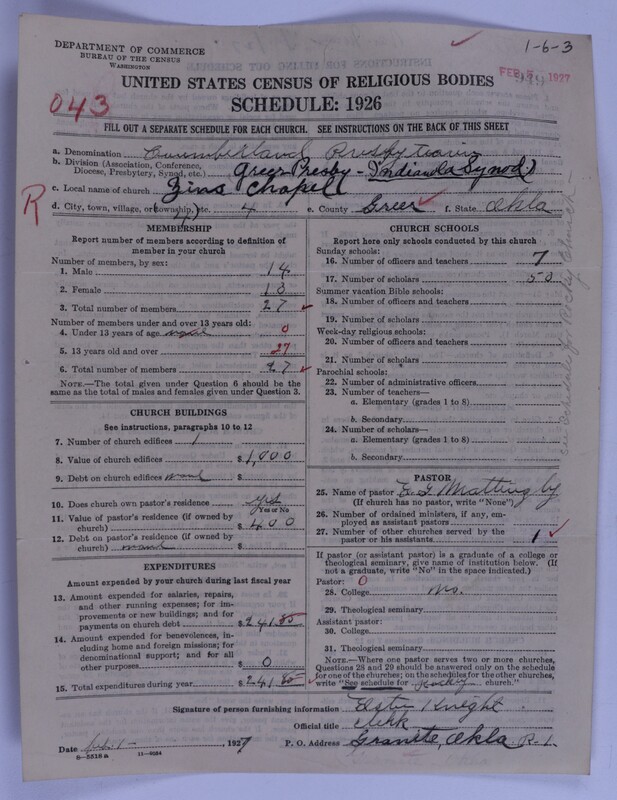 1-6-3
DEPARTMENT OF COMMERCE
BUREAU OF THE CENSUS
WASHINGTON
FEB 5 1927
UNITED STATES CENSUS OF RELIGIOUS BODIES
043
SCHEDULE: 1926
FILL OUT A SEPARATE SCHEDULE FOR EACH CHURCH. SEE INSTRUCTIONS ON THE BACK OF THIS SHEET
a. Denomination Cumberland Presbyterian
b. Division (Association, Conference, Diocese, Presbytery, Synod, etc.) Greer Presby - Indianola Synod)
R
c. Local name of church Zions Chapell
d. City, town, village, or (township,) etc. 4
e. County Greer
f. State Okla
MEMBERSHIP
Report number of members according to definition of member in your church
Number of members, by sex:
1. Male 14
2. Female 13
3. Total number of members 27
Number of members under and over 13 years old:
4. Under 13 years of age 0
5. 13 years old and over 27
6. Total number of members 27
NOTE.—The total given under Question 6 should be the same as the total of males and females given under Question 3.
CHURCH BUILDINGS
See instructions, paragraphs 10 to 12
7. Number of church edifices 1
8. Value of church edifices $1,000
9. Debt on church edifices $
10. Does church own pastor's residence yes
Yes or No
11. Value of pastor's residence (if owned by church) $400
12. Debt on pastor's residence (if owned by church) $
EXPENDITURES
Amount expended by your church during last fiscal year
13. Amount expended for salaries, repairs, and other running expenses; for improvements or new buildings; and for payments on church debt $241.85
14. Amount expended for benevolences, including home and foreign missions; for denominational support; and for all other purposes $0
15. Total expenditures during year $241.85
CHURCH SCHOOLS
Report here only schools conducted by this church
Sunday schools:
16. Number of officers and teachers 7
17. Number of scholars 50
Summer vacation Bible schools:
18. Number of officers and teachers
19. Number of scholars
Week-day religious schools:
20. Number of officers and teachers
21. Number of scholars
Parochial schools:
22. Number of administrative officers
23. Number of teachers—
a. Elementary (grades 1 to 8)
b. Secondary
24. Number of scholars—
a. Elementary (grades 1 to 8)
b. Secondary
PASTOR
25. Name of pastor E. G. Mattingly
(If church has no pastor, write "None")
26. Number of ordained ministers, if any, employed as assistant pastors
27. Number of other churches served by the pastor or his assistants 1
If pastor (or assistant pastor) is a graduate of a college or theological seminary, give name of institution below. (If not a graduate, write "No" in the space indicated.)
Pastor: 0
28. College no.
29. Theological seminary
Assistant pastor:
30. College
31. Theological seminary
NOTE.—Where one pastor serves two or more churches, Questions 28 and 29 should be answered only on the schedule for one of the churches; on the schedules for the other churches, write "See schedule for Rocky church."
See Schedule for Rocky Church -
Signature of person furnishing information Elsie Knight
Official title Clerk
Date Feb. 1 - 1927
P. O. Address Granite, Okla R-1.
8-5518 a
11-9234